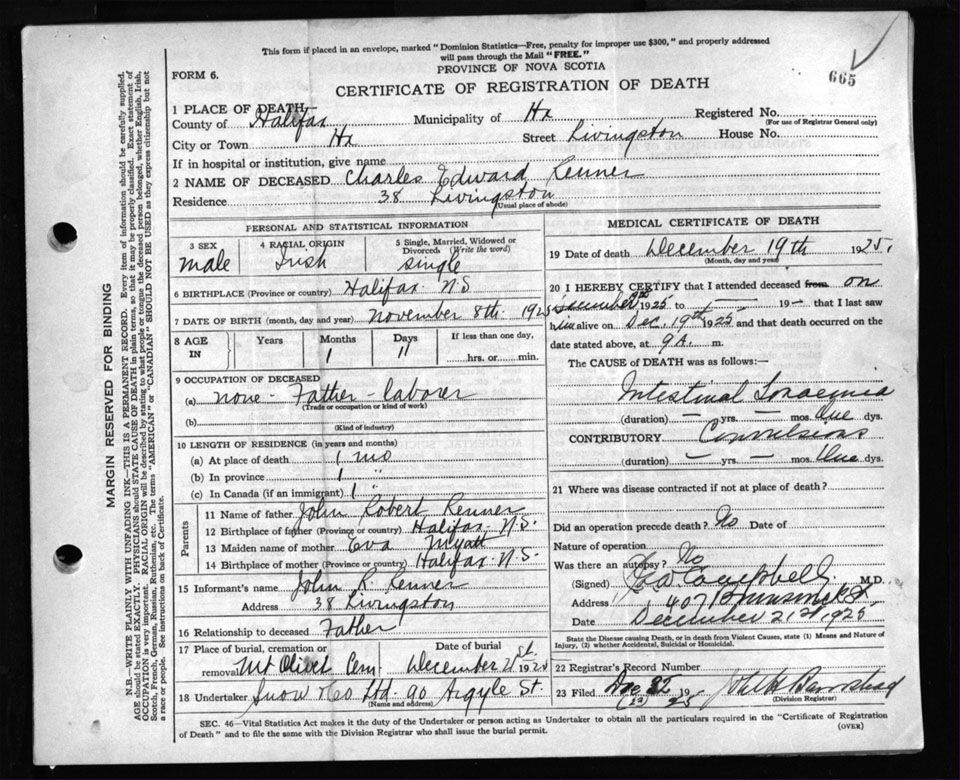 This form if placed in an envelope, marked "Dominion Statistics—Free, penalty for improper use $300," and properly addressed
will pass through the Mail "FREE."
PROVINCE OF NOVA SCOTIA
665
FORM 6.
CERTIFICATE OF REGISTRATION OF DEATH
1 PLACE OF DEATH,
County of Halifax Municipality of Hx Registered No.
(For use of Registrar General only)
City or Town Hx Street Livingston House No.
If in hospital or institution, give name
2 NAME OF DECEASED Charles Edward Renner
Residence 38 Livingston
(Usual place of abode)
PERSONAL AND STATISTICAL INFORMATION
3 SEX 4 RACIAL ORIGIN 5 Single, Married, Widowed or
Divorced. (Write the word)
male Irish single
6 BIRTHPLACE (Province or country) Halifax N.S
7 DATE OF BIRTH (month, day and year) November 8th. 1925
8 AGE IN Years Months Days If less than one day,
1 11 hrs. or min.
9 OCCUPATION OF DECEASED
(a) none - Father - laborer
(Trade or occupation or kind of work)
(b)
(Kind of industry)
10 LENGTH OF RESIDENCE (in years and months)
(a) At place of death 1 mo
(b) In province 1 "
(c) In Canada (if an immigrant) 1 "
Parents
11 Name of father John Robert Renner
12 Birthplace of father (Province or country) Halifax. N.S.
13 Maiden name of mother Eva Myatt
14 Birthplace of mother (Province or country) Halifax N.S.
15 Informant's name John R. Renner
Address 38 Livingston
16 Relationship to deceased Father
17 Place of burial, cremation or Date of burial
removal Mt Olivet Cem. December 21st. 1925
18 Undertaker Snow & Co. Ltd. 90 Argyle St.
(Name and address)
MEDICAL CERTIFICATE OF DEATH
19 Date of death December 19th 1925.
(Month, day and year)
20 I HEREBY CERTIFY that I attended deceased from on
December 1925 to — 19— that I last saw
him alive on Dec. 19th 1925 and that death occurred on the
date stated above, at 9 A. m.
The CAUSE of DEATH was as follows:—
Intestinal Toxaemia
(duration) — yrs. — mos. One dys.
CONTRIBUTORY Convulsions
(duration) — yrs. — mos. One dys.
21 Where was disease contracted if not at place of death?
Did an operation precede death? No Date of
Nature of operation
Was there an autopsy? No
(Signed) Campbell M.D.
Address 407 Brunswick St
Date December 21st 1925
State the Disease causing Death, or in death from Violent Causes, state (1) Means and Nature of
Injury, (2) whether Accidental, Suicidal or Homicidal.
22 Registrar's Record Number
23 Filed Dec 1925
(Division Registrar)
SEC. 46—Vital Statistics Act makes it the duty of the Undertaker or person acting as Undertaker to obtain all the particulars required in the "Certificate of Registration
of Death" and to file the same with the Division Registrar who shall issue the burial permit.
(OVER)
MARGIN RESERVED FOR BINDING
N.B.—WRITE PLAINLY WITH UNFADING INK—THIS IS A PERMANENT RECORD. Every item of information should be carefully supplied.
AGE should be stated EXACTLY. PHYSICIANS should STATE CAUSE OF DEATH in plain terms, so that it may be properly classified. Exact statement of
OCCUPATION is very important. RACIAL ORIGIN will be described by stating to what people or tongue the deceased person belonged, whether English, Irish,
Scotch, French, German, Russian, Ruthenian, etc. The terms "AMERICAN" or "CANADIAN" SHOULD NOT BE USED as they express citizenship but not
a race or people. See instructions on back of Certificate.